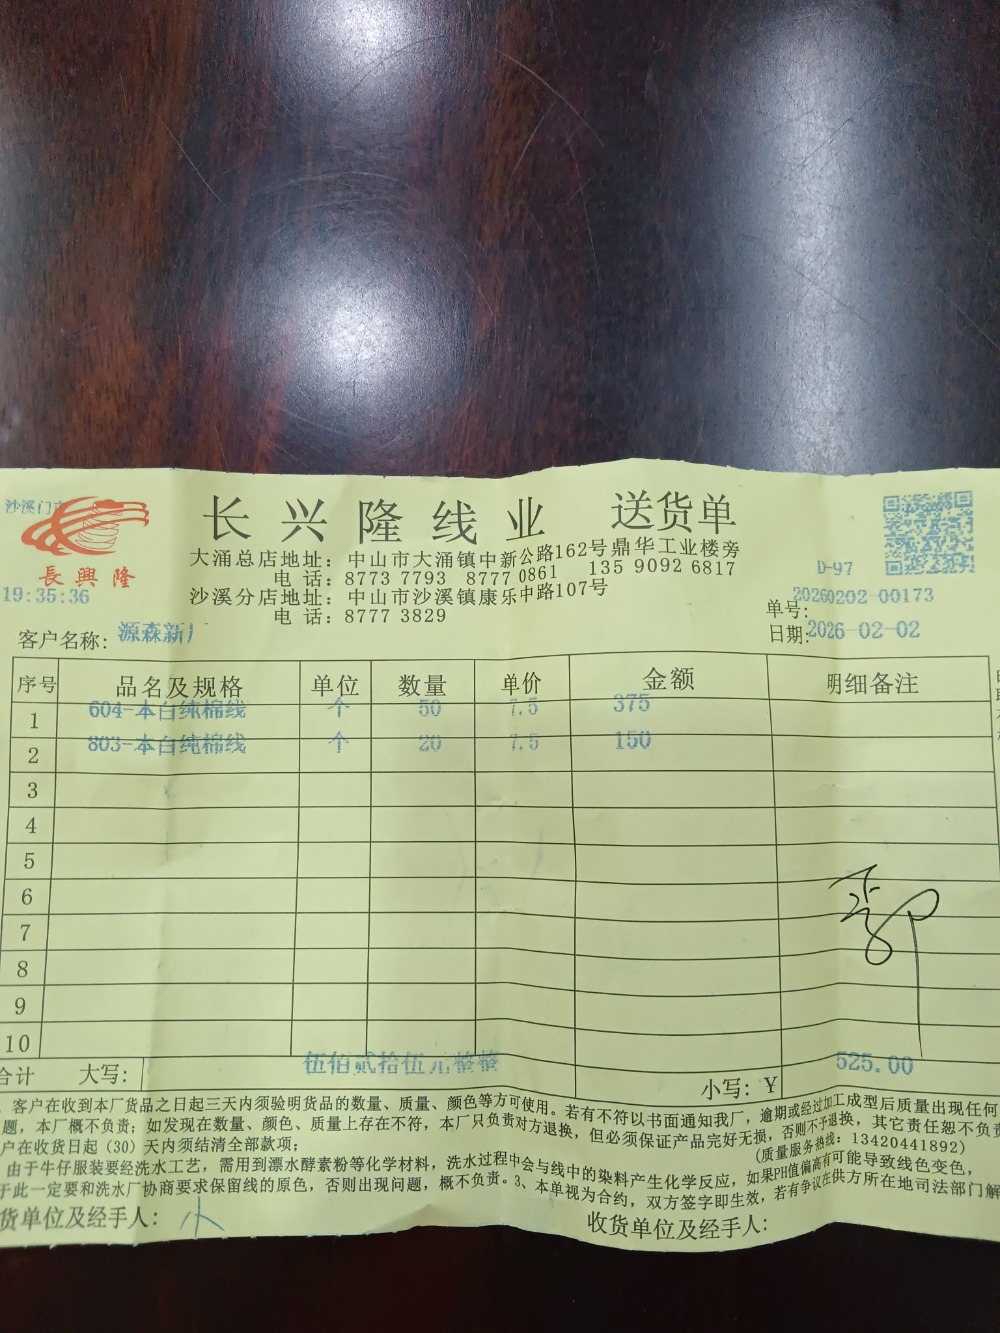 沙溪门市
長興隆
19:35:36
长兴隆线业 送货单
大涌总店地址：中山市大涌镇中新公路162号鼎华工业楼旁
电 话：8773 7793 8777 0861 135 9092 6817
沙溪分店地址：中山市沙溪镇康乐中路107号
电 话：8777 3829
D-97
单号：20260202-00173
客户名称：源森新
日期：2026-02-02
序号 品名及规格 单位 数量 单价 金额 明细备注
1 604-本白纯棉线 个 50 7.5 375
2 803-本白纯棉线 个 20 7.5 150
3
4
5
6
7
8
9
10
合计 大写： 伍佰贰拾伍元整整 小写：￥ 525.00
客户在收到本厂货品之日起三天内须验明货品的数量、质量、颜色等方可使用。若有不符以书面通知我厂，逾期或经过加工成型后质量出现任何
题，本厂概不负责；如发现在数量、颜色、质量上存在不符，本厂只负责对方退换，但必须保证产品完好无损，否则不予退换，其它责任恕不负责
户在收货日起（30）天内须结清全部款项；
(质量服务热线：13420441892)
由于牛仔服装要经洗水工艺，需用到漂水酵素粉等化学材料，洗水过程中会与线中的染料产生化学反应，如果PH值偏高有可能导致线色变色，
于此一定要和洗水厂协商要求保留线的原色，否则出现问题，概不负责。3、本单视为合约，双方签字即生效，若有争议在供方所在地司法部门解
货单位及经手人： 小
收货单位及经手人：